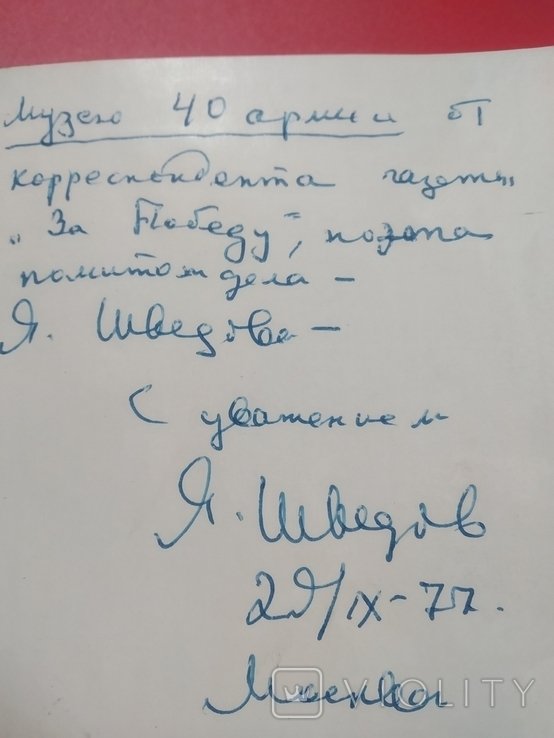 Музею 40 армии от
корреспондента газеты
„За Победу", поэта
политотдела –
Я. Шведова –
С уважением
Я. Шведов
29/IX-77.
Москва
VIOLITY